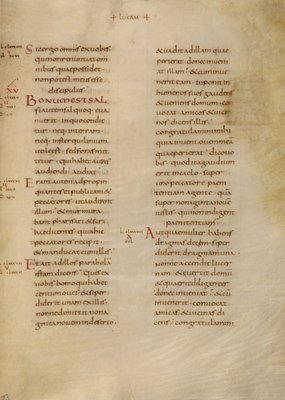 + LUCAM +
Sic ergo omnis ex uobis
qui non renuntiat om
nibus quae possidet
non potest meus esse
discipulus
XV
BONUM EST SAL
si autem sal quoq: eua
nuerit · in quo condie
tur · neq: in terram
neq: in sterquilinium
utile est · sed foras mit
tetur · qui habet aures
audiendi audiat
Erant autem ei adpropin
quantes et publicani &
peccatores · ut audirent
illum · & murmura
bant pharisaei & scri
bae dicentes · quia hic
peccatores recipit
& manducat cum illis
Et ait ad illos parabola
istam dicens · Quis ex
uobis homo qui habet
centum oues · & si per
diderit unam ex illis
nonne dimittit nona
ginta nouem in deserto
& uadit ad illam quae
perierat · donec inueni
at illam · & cum inuene
rit eam · inponit in
humeros suos gaudens
& ueniens domum · con
uocat amicos & uici
nos dicens illis
congratulamini mihi
quia inueni ouem mea
quae perierat · dico uo
bis · quod ita gaudium
erit in caelo · super
uno peccatore paeni
tentiam agente · quam
super nonaginta noue
iustis · qui non indigent
paenitentiam
Aut quae mulier habens
dragmas decem · si per
diderit dragmam una
nonne accendit lucer
nam · & euerrit domu
& quaerit diligenter
donec inueniat · & cu
inuenerit · conuocat
amicas & uicinas di
cens · congratulamini